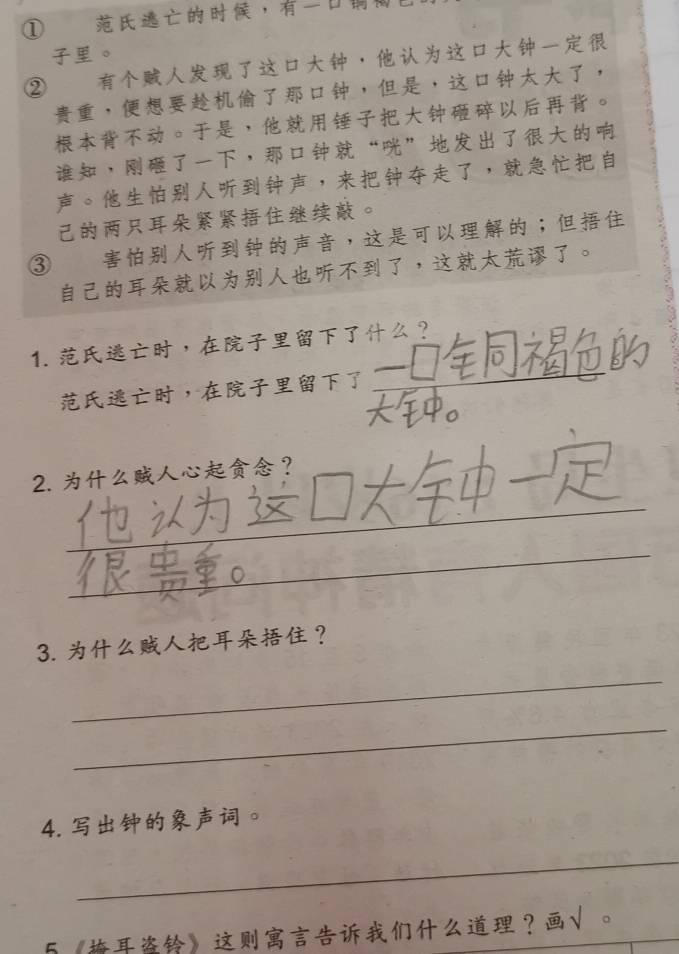 ① 范氏逃亡的时候，有一口铜褐
子里。
② 有个贼人发现了这口大钟，他认为这口大钟一定很
贵重，便想要趁机偷了那口钟，但是，这口钟太大了，
根本背不动。于是，他就用锤子把大钟砸碎以后再背。
谁知，刚砸了一下，那口钟就“咣”地发出了很大的响
声。他生怕别人听到钟声，来把钟夺走了，就急忙把自
己的两只耳朵紧紧捂住继续敲。
③ 害怕别人听到钟的声音，这是可以理解的；但捂住
自己的耳朵就以为别人也听不到了，这就太荒谬了。
1. 范氏逃亡时，在院子里留下了什么？
范氏逃亡时，在院子里留下了 一口铜褐色的
大钟。
2. 为什么贼人心起贪念？
他认为这口大钟一定
很贵重。
3. 为什么贼人把耳朵捂住？
4. 写出钟的象声词。
5 《掩耳盗铃》这则寓言告诉我们什么道理？画√。